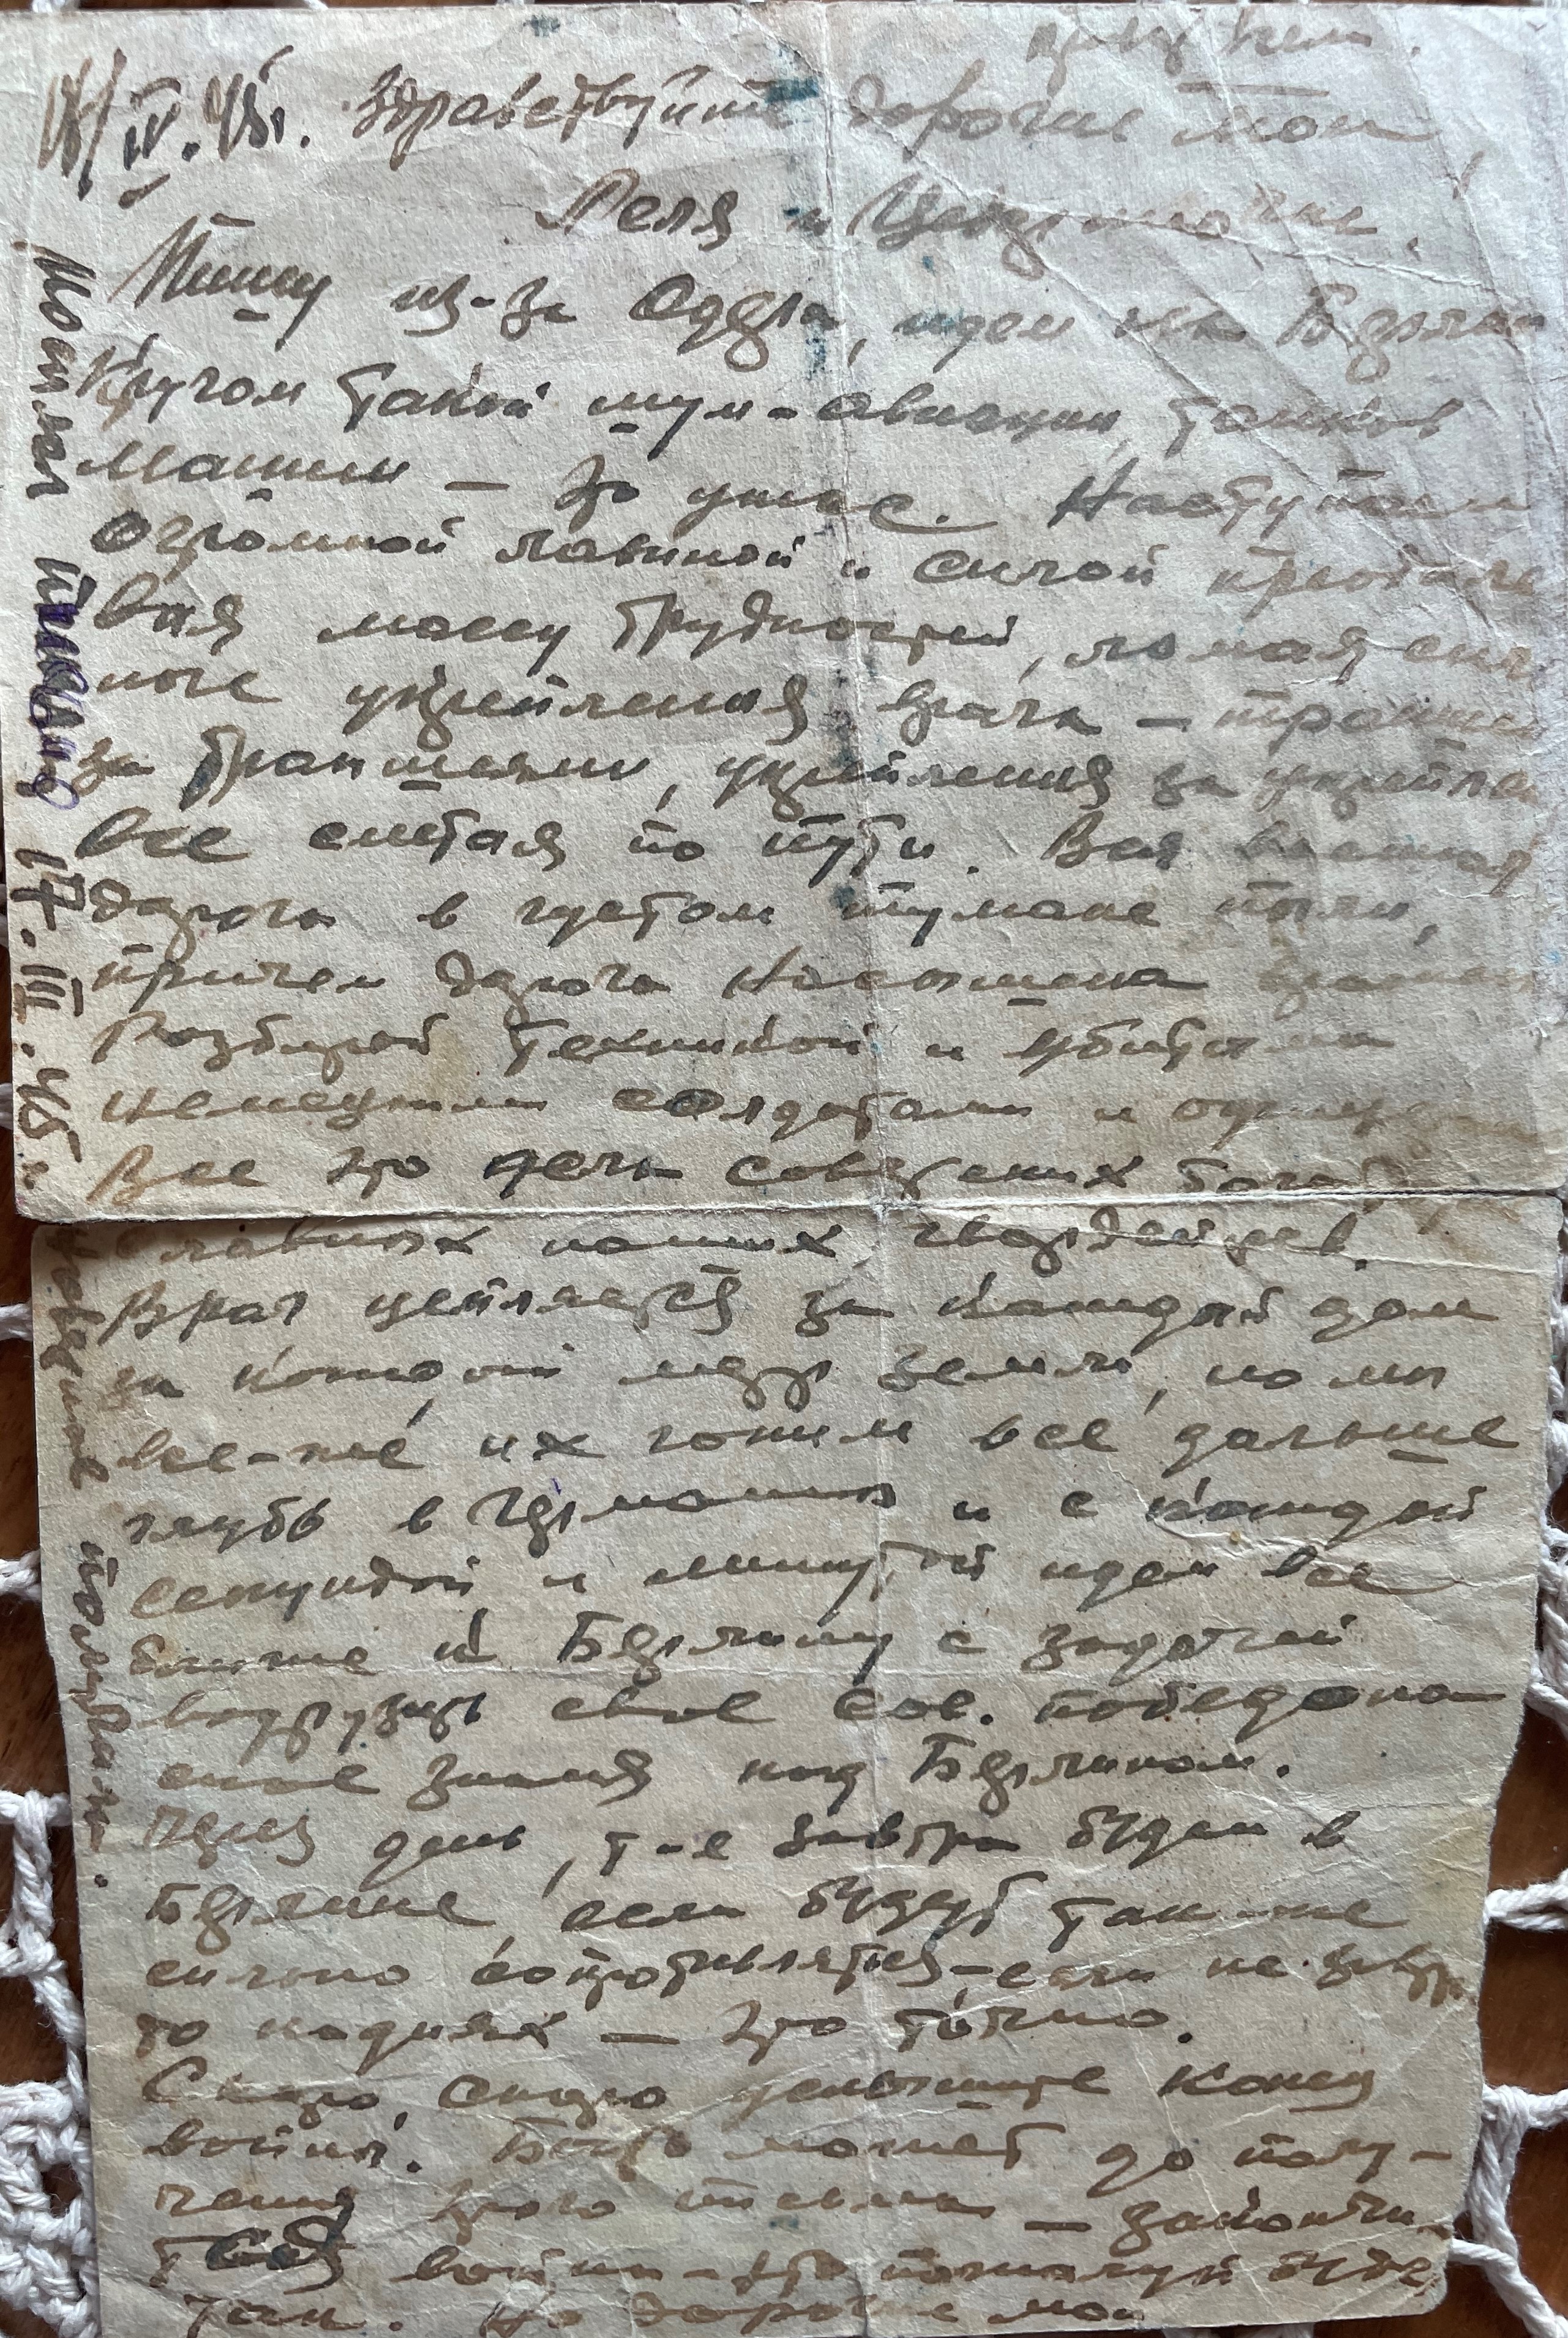 18/IV.45г. Здравствуйте дорогие мои,
Леля и
Пишу из-за Одера, идем на Берлин
Кругом такой шум - авиации, танков
машин — это ужас. Наступаем
огромной лавиной и силой преодоле
вая массу трудностей, ломая силь
ные укрепления врага — траншеи
за траншеями, укрепления за укрепле
все сметая по пути. Вся
дорога в густом тумане пыли,
причем дорога насыщена
разбитой техникой и убитыми
немецкими солдатами и офицерами
Все это дела советских бога
славных наших гвардейцев.
Враг цепляется за каждый дом
за каждый метр земли, но мы
все-же их гоним всё дальше
глубь в Германию и с каждой
секундой и минутой идем все
ближе к Берлину с задачей
водрузить свое Сов. победоно
сное знамя над Берлином.
Через день, т-е завтра будем в
Берлине, если будут так-же
сильно сопротивляться - если не завтра
то на днях — это точно.
Скоро, скоро услышите конец
войны. Быть может до полу-
чения этого письма — закончи-
тся война - это пожалуй буде
так. Но дорогие мои
17.III.45г.